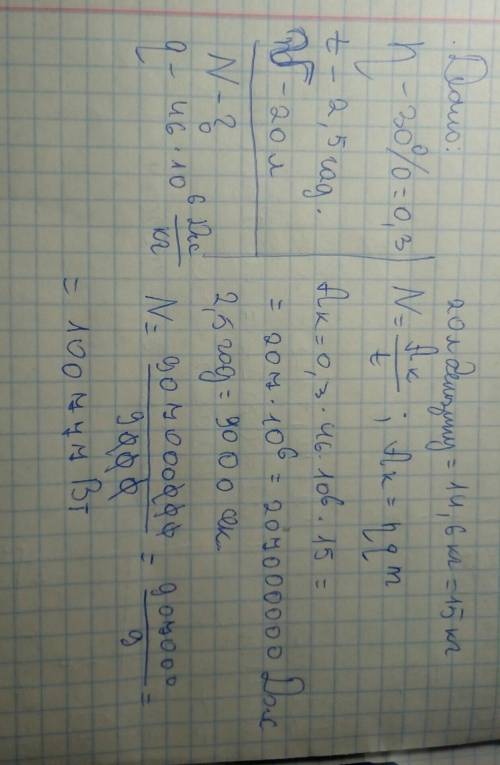 Дано:
η - 30% = 0,3
t - 2,5 год.
- 20 л
N - ?
q - 46·10⁶ Дж/кг
20л бензину = 14,6 кг = 15 кг
N = Aк/t ; Aк = ηqm
Aк = 0,3·46·10⁶·15 =
= 207·10⁶ = 207000000 Дж
2,5 год = 9000 сек.
N = 907000000/9000 = 907000/9 =
= 100777 Вт